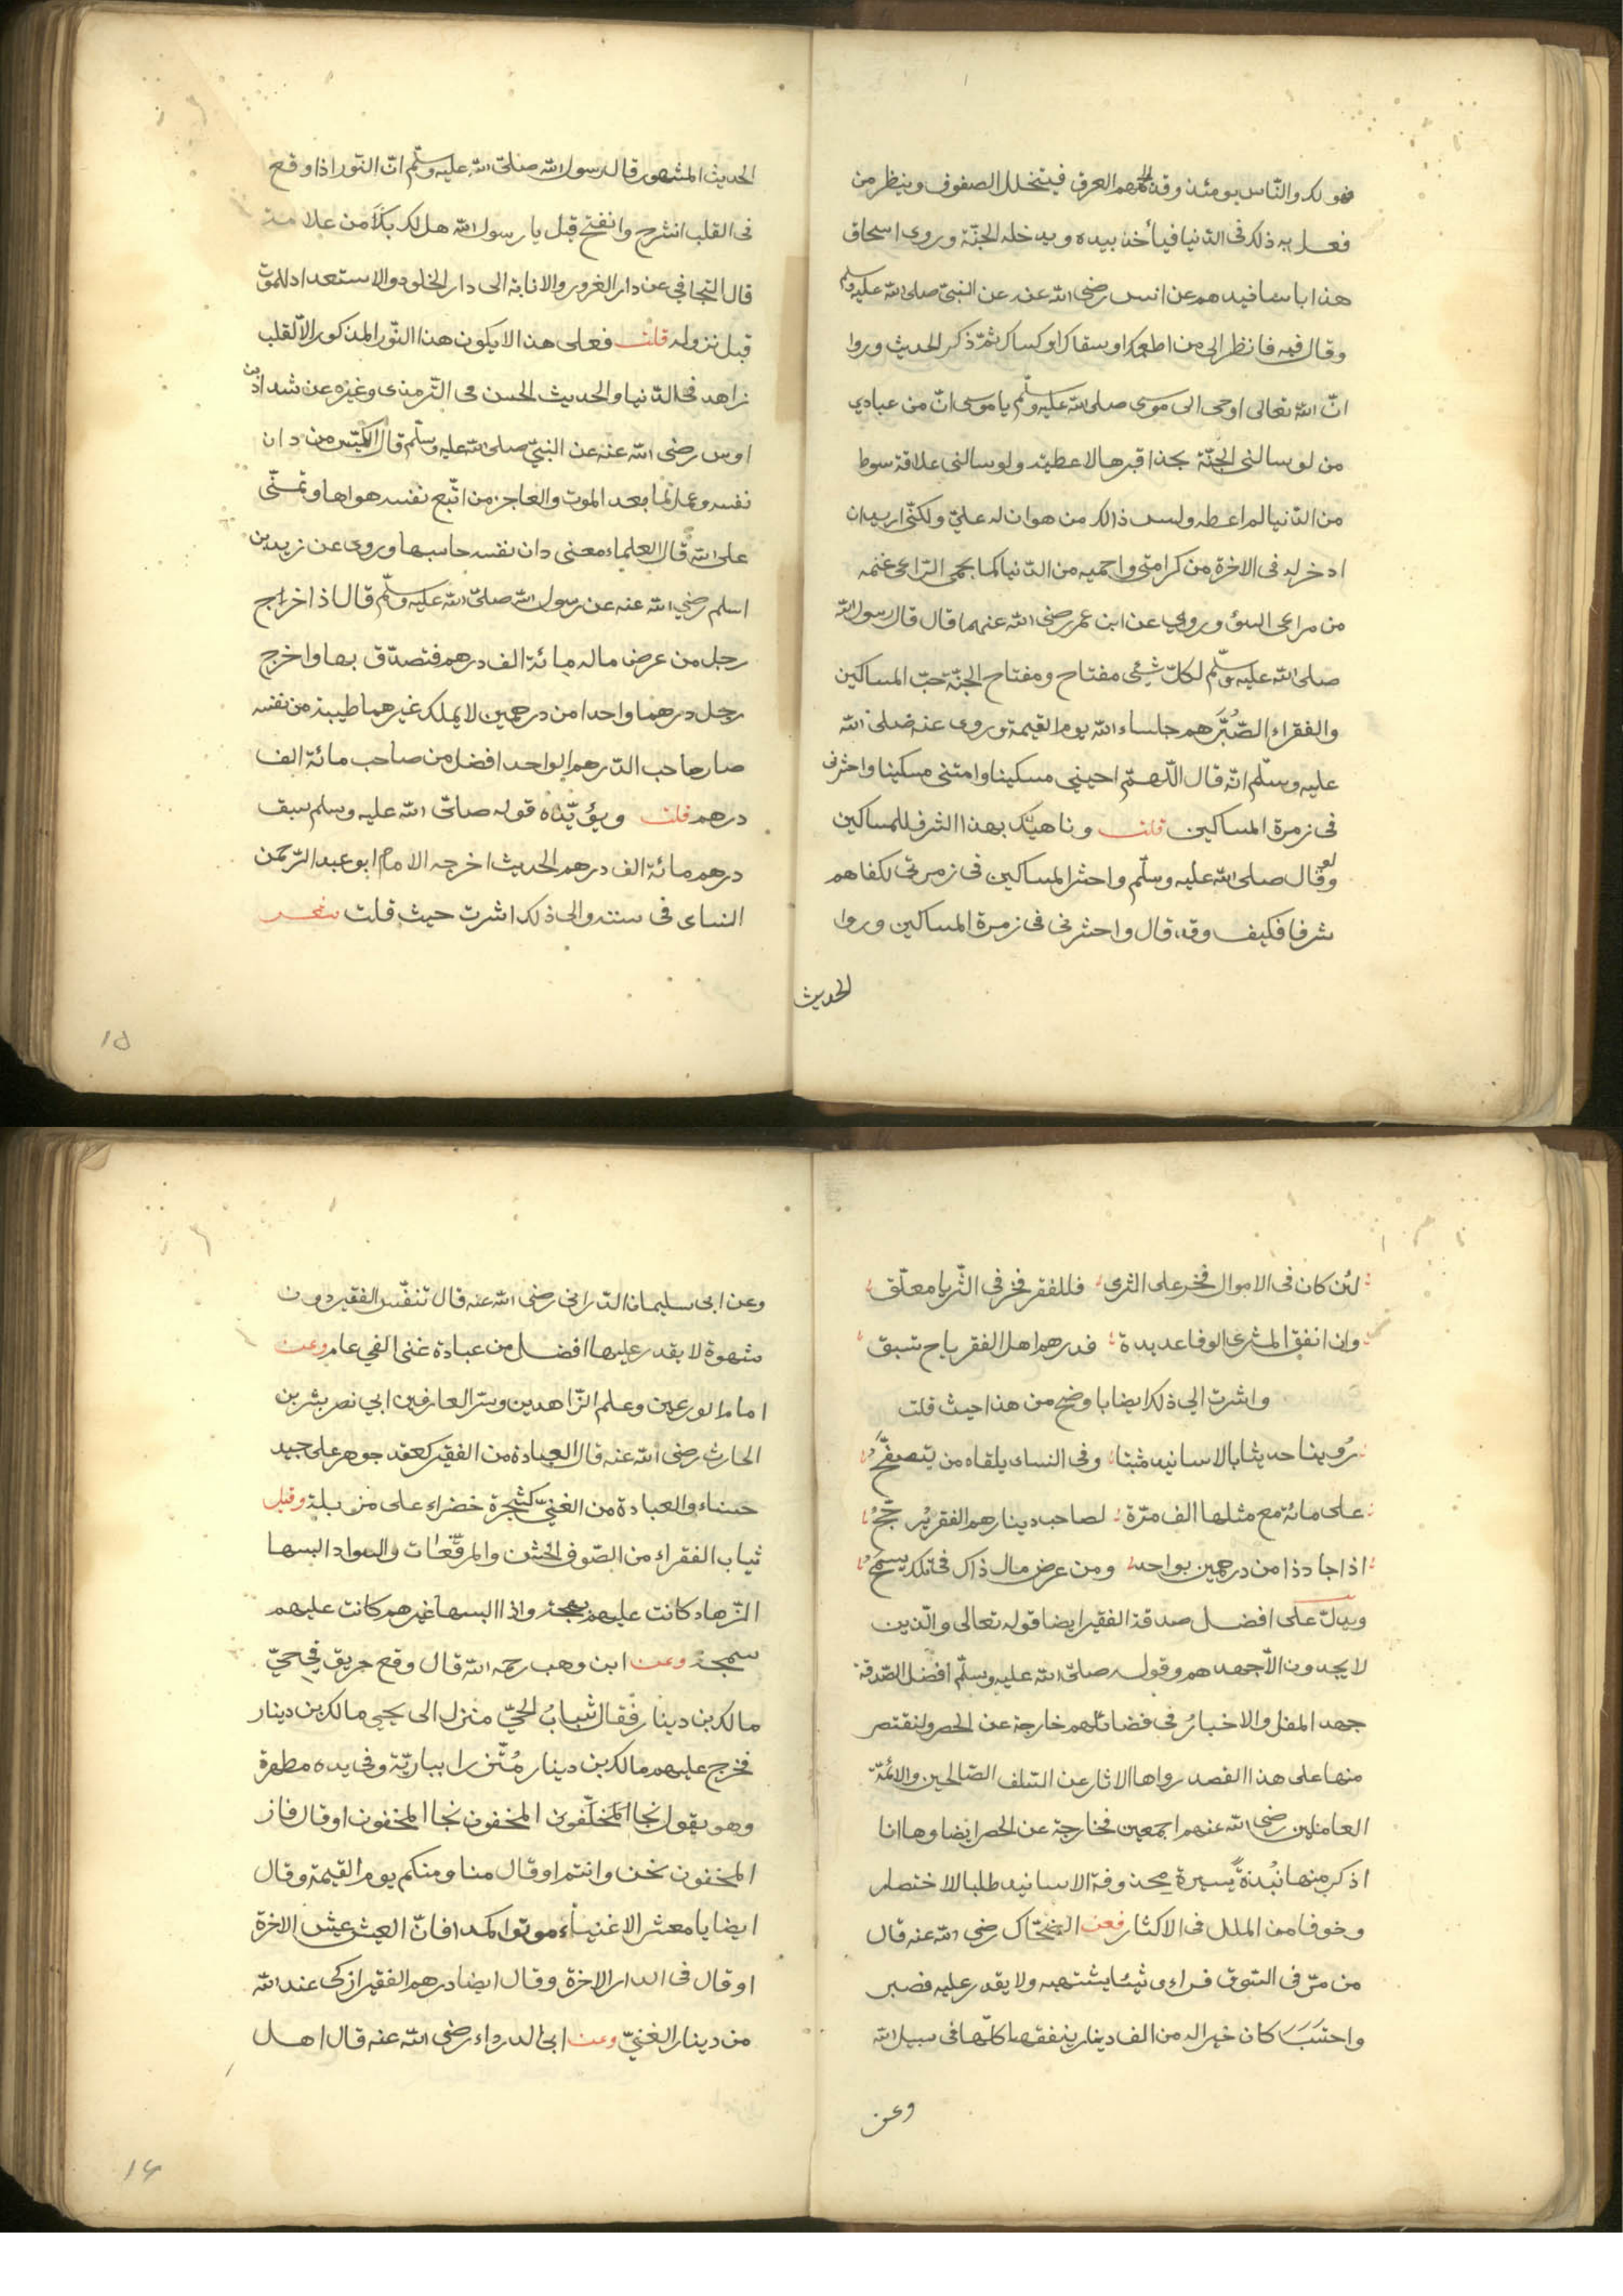 فهو لك والناس يومئذ وقد الجمهم العرق فيتخلل الصفوف وينظر من
فعل به ذلك فى الدنيا فياخذ بيده ويدخله الجنّة وروى اسحاق
هذا باسانيدهم عن انس رضى الله عنه عن النبىّ صلى الله عليه وسلم
وقال فيه فانظر الى من اطعمك اوسقاك اوكساك ثمّ ذكر الحديث وروا
انّ الله تعالى اوحى الى موسى صلى الله عليه وسلّم يا موسى انّ من عبادي
من لو سالنى الجنّة بحذافيرها لاعطيته ولو سالنى علاقة سوط
من الدّنيا لم اعطه وليس ذالك من هوان له علىّ ولكنّى اريد ان
ادخر له فى الاخرة من كرامتى واحميه من الدّنيا كما يحمى الرّاعى غنمه
من مراعى السؤ وروى عن ابن عمر رضى الله عنهما قال قال رسول الله
صلى الله عليه وسلّم لكلّ شئ مفتاح ومفتاح الجنّة حبّ المساكين
والفقراء الصُّبَّر هم جلساء الله يوم القيمة وروى عنه صلى الله
عليه وسلّم انّه قال اللّهمّ احينى مسكينا وامتنى مسكينا واحشرنى
فى زمرة المساكين قلت وناهيك بهذا الشرف للمساكين
ولو قال صلى الله عليه وسلّم واحشر المساكين فى زمرتى لكفاهم
شرفا فكيف وقد قال واحشرنى فى زمرة المساكين وروا
الحديث
الحديث المشهور قال رسول الله صلىّ الله عليه وسلّم انّ النّور اذا وقع
فى القلب انشرح وانفتح قيل يا رسول الله هل لذلك من علامة
قال التجافى عن دار الغرور والانابة الى دار الخلود والاستعداد للموت
قبل نزوله قلت فعلى هذا لا يكون هذا النّور المذكور الاّ لقلب
زاهد فى الدّنيا والحديث الحسن فى التّرمذى وغيره عن شداد بن
اوس رضى الله عنه عن النبىّ صلى الله عليه وسلّم قال الكيّس من دان
نفسه وعمل لما بعد الموت والعاجز من اتّبع نفسه هواها وتمنّى
على الله قال العلماء معنى دان نفسه حاسبها وروى عن زيد بن
اسلم رضى الله عنه عن رسول الله صلىّ الله عليه وسلّم قال اذا اخراج
رجل من عرض ماله مائة الف درهم فتصدّق بها واخرج
رجل درهما واحدا من درهمين لا يملك غيرهما طيبة من نفسه
صار صاحب الدّرهم الواحد افضل من صاحب مائة الف
درهم قلت ويؤيّده قوله صلىّ الله عليه وسلم سبق
درهم مائة الف درهم الحديث اخرجه الامام ابو عبد الرّحمن
النساى فى سننه والى ذلك اشرت حيث قلت شعر
١٥
لئن كان فى الاموال فخر على الثرى فللفقر فخر فى الثّريا معلّق
وان انفق المثرى الوفا عديدة فدرهم اهل الفقر ياح تسبق
واشرت الى ذلك ايضا باوضح من هذا حيث قلت
رُوينا حديثا بالاسانيد مثبتا وفى النساى يلقاه من يتصفّح
على مائة مع مثلها الف مرّة لصاحب دينار هم الفقر يرجح
اذا جاد ذا من درهمين بواحد ومن عرض مال ذاك فى تلك يسمح
ويدلّ على افضل صدقة الفقير ايضا قوله تعالى والّذين
لا يجدون الاّ جهدهم وقوله صلىّ الله عليه وسلّم افضل الصّدقة
جهد المقل والاخبارُ فى فضائلهم خارجة عن الحصر ولنقتصر
منها على هذا القصد رواها الاثار عن السّلف الصّالحين والائمّة
العاملين رضى الله عنهم اجمعين فخارجة عن الحصر ايضا وها انا
اذكر منها نُبْذةً يسيرة محذوفة الاسانيد طلبا للاختصار
وخوفا من الملل فى الاكثار فعن الضحّاك رضى الله عنه قال
من مرّ فى السّوق فراى شيئا يشتهيه ولا يقدر عليه فصبر
واحتَسَبَ كان خيرا له من الف دينار ينفقها كلّها فى سبيل الله
وعن
وعن ابى سليمان الدّرانى رضى الله عنه قال تنفّس الفقير دون
شهوة لا يقدر عليها افضل من عبادة غنى الفى عام وعن
امام الورعين وعلم الزّاهدين وسرّ العارفين ابي نصر بشر بن
الحارث رضى الله عنه قال العبادة من الفقير كعقد جوهر على جيد
حسناء والعبادة من الغنىّ كشجرة خضراء على مزبلة وقيل
ثياب الفقراء من الصّوف الخشن والمرقّعات والسواد البسها
الزّهاد كانت عليهم بهجة واذا البسها غيرهم كانت عليهم
سمجة وعن ابن وهب رحمه الله قال وقع حريق فى حىّ
مالك بن دينار فقال شبابُ الحىّ منزل الى يحيى مالك بن دينار
فخرج عليهم مالك بن دينار مُتّزرا ببارية وفى يده مطهرة
وهو يقول نجا المخفّفون المخفون نجا المخفون او قال فاز
المخفون نحن وانتم او قال منا ومنكم يوم القيمة وقال
ايضا يا معشر الاغنياء موتوا كمدا فانّ العيش عيش الاخرة
او قال فى الدار الاخرة وقال ايضا درهم الفقير ازكى عند الله
من دينار الغنىّ وعن ابى الدرداء رضى الله عنه قال اهل
١٦